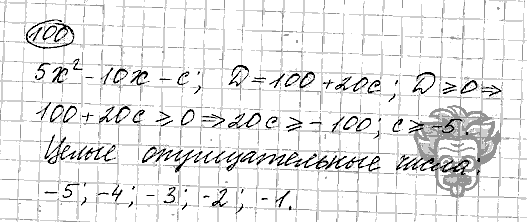 100
5x² - 10x - c; D = 100 + 20c; D ≥ 0 ⇒
100 + 20c ≥ 0 ⇒ 20c ≥ -100; c ≥ -5.
Целые отрицательные числа:
-5; -4; -3; -2; -1.